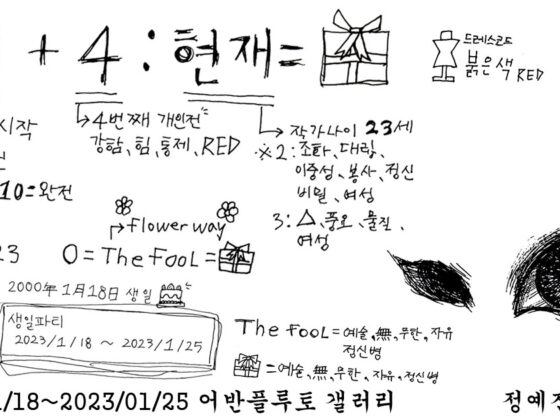 + 4 : 현재 =
드레스코드
붉은색 RED
시작
4번째 개인전
강함、힘、통제、RED
작가나이 23세
※2 : 조화、대립、
이중성、봉사、정신
비밀、여성
10=완전
3 : △、풍요、물질、
여성
Flower way
23
0 = The FooL =
2000년 1월 18일 생일
생일파티
2023/1/18 ~ 2023/1/25
The FooL = 예술、無、무한、자유
정신병
= 예술、無、무한、자유、정신병
1/18~2023/01/25 어반플루토 갤러리
정예